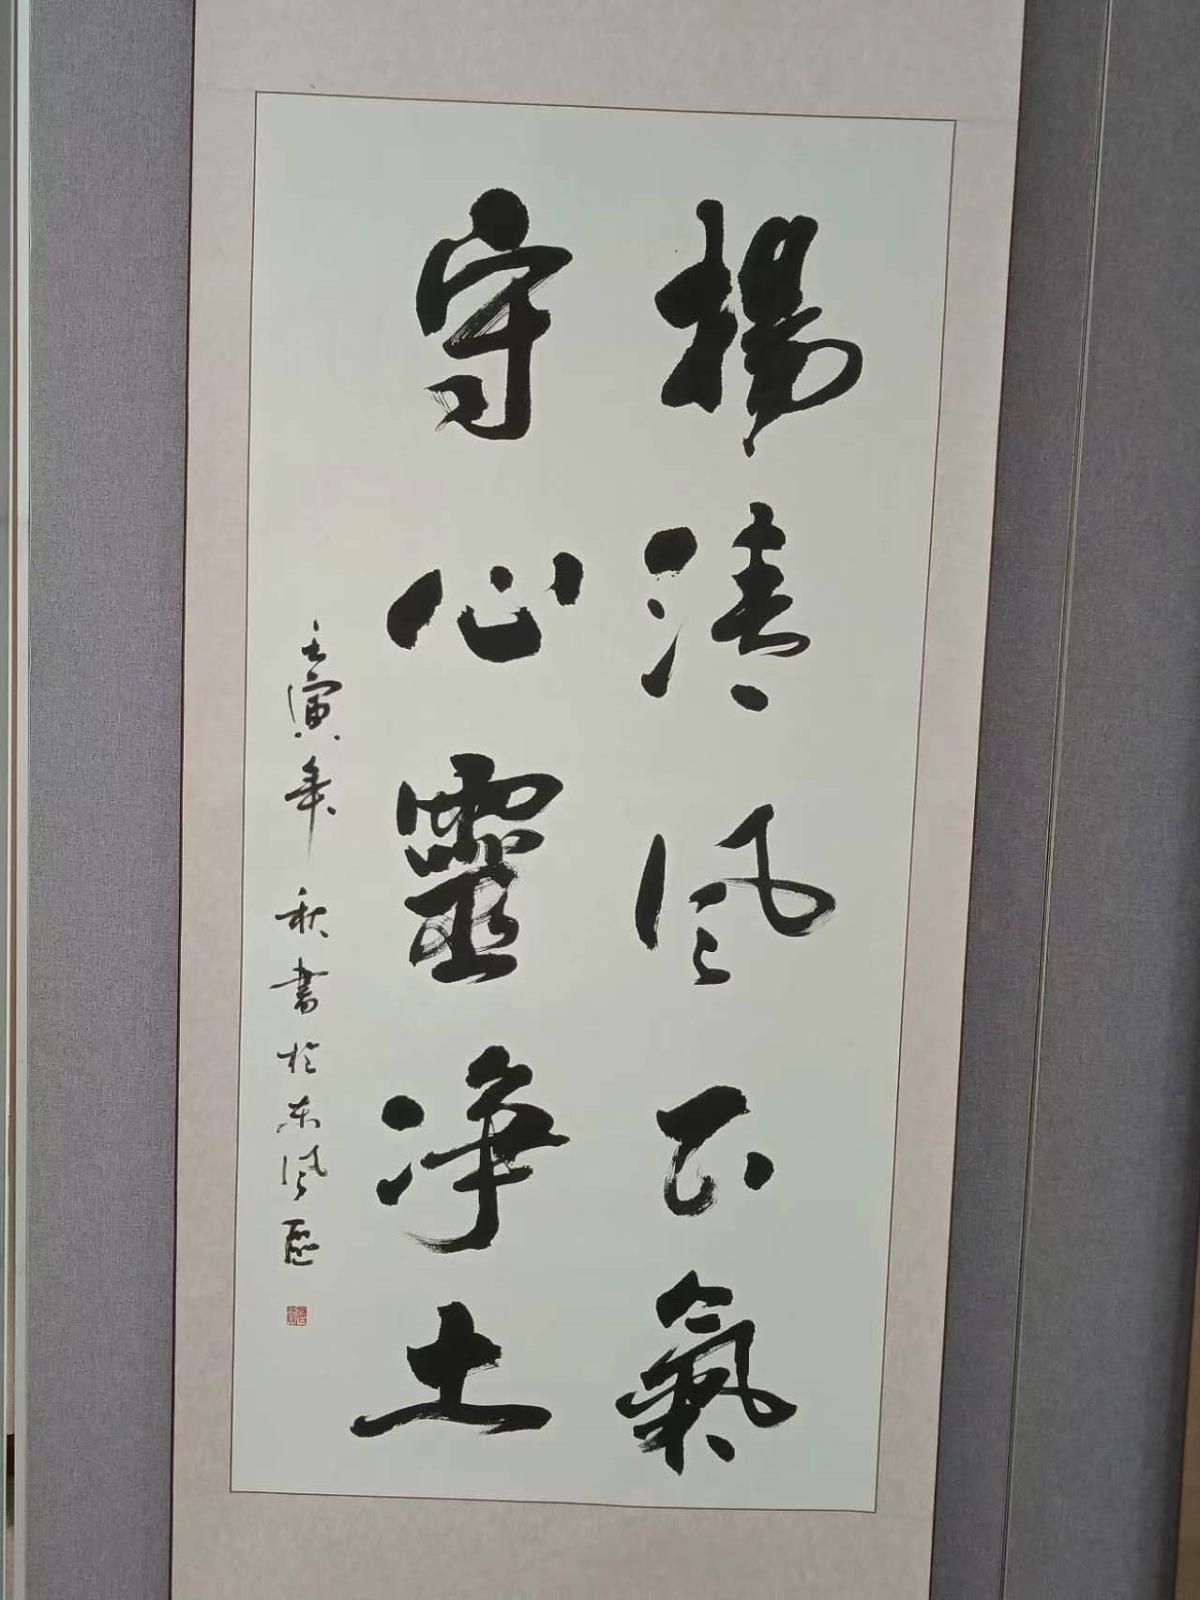 揚清風正氣
守心靈净土
壬寅年秋書於东風區